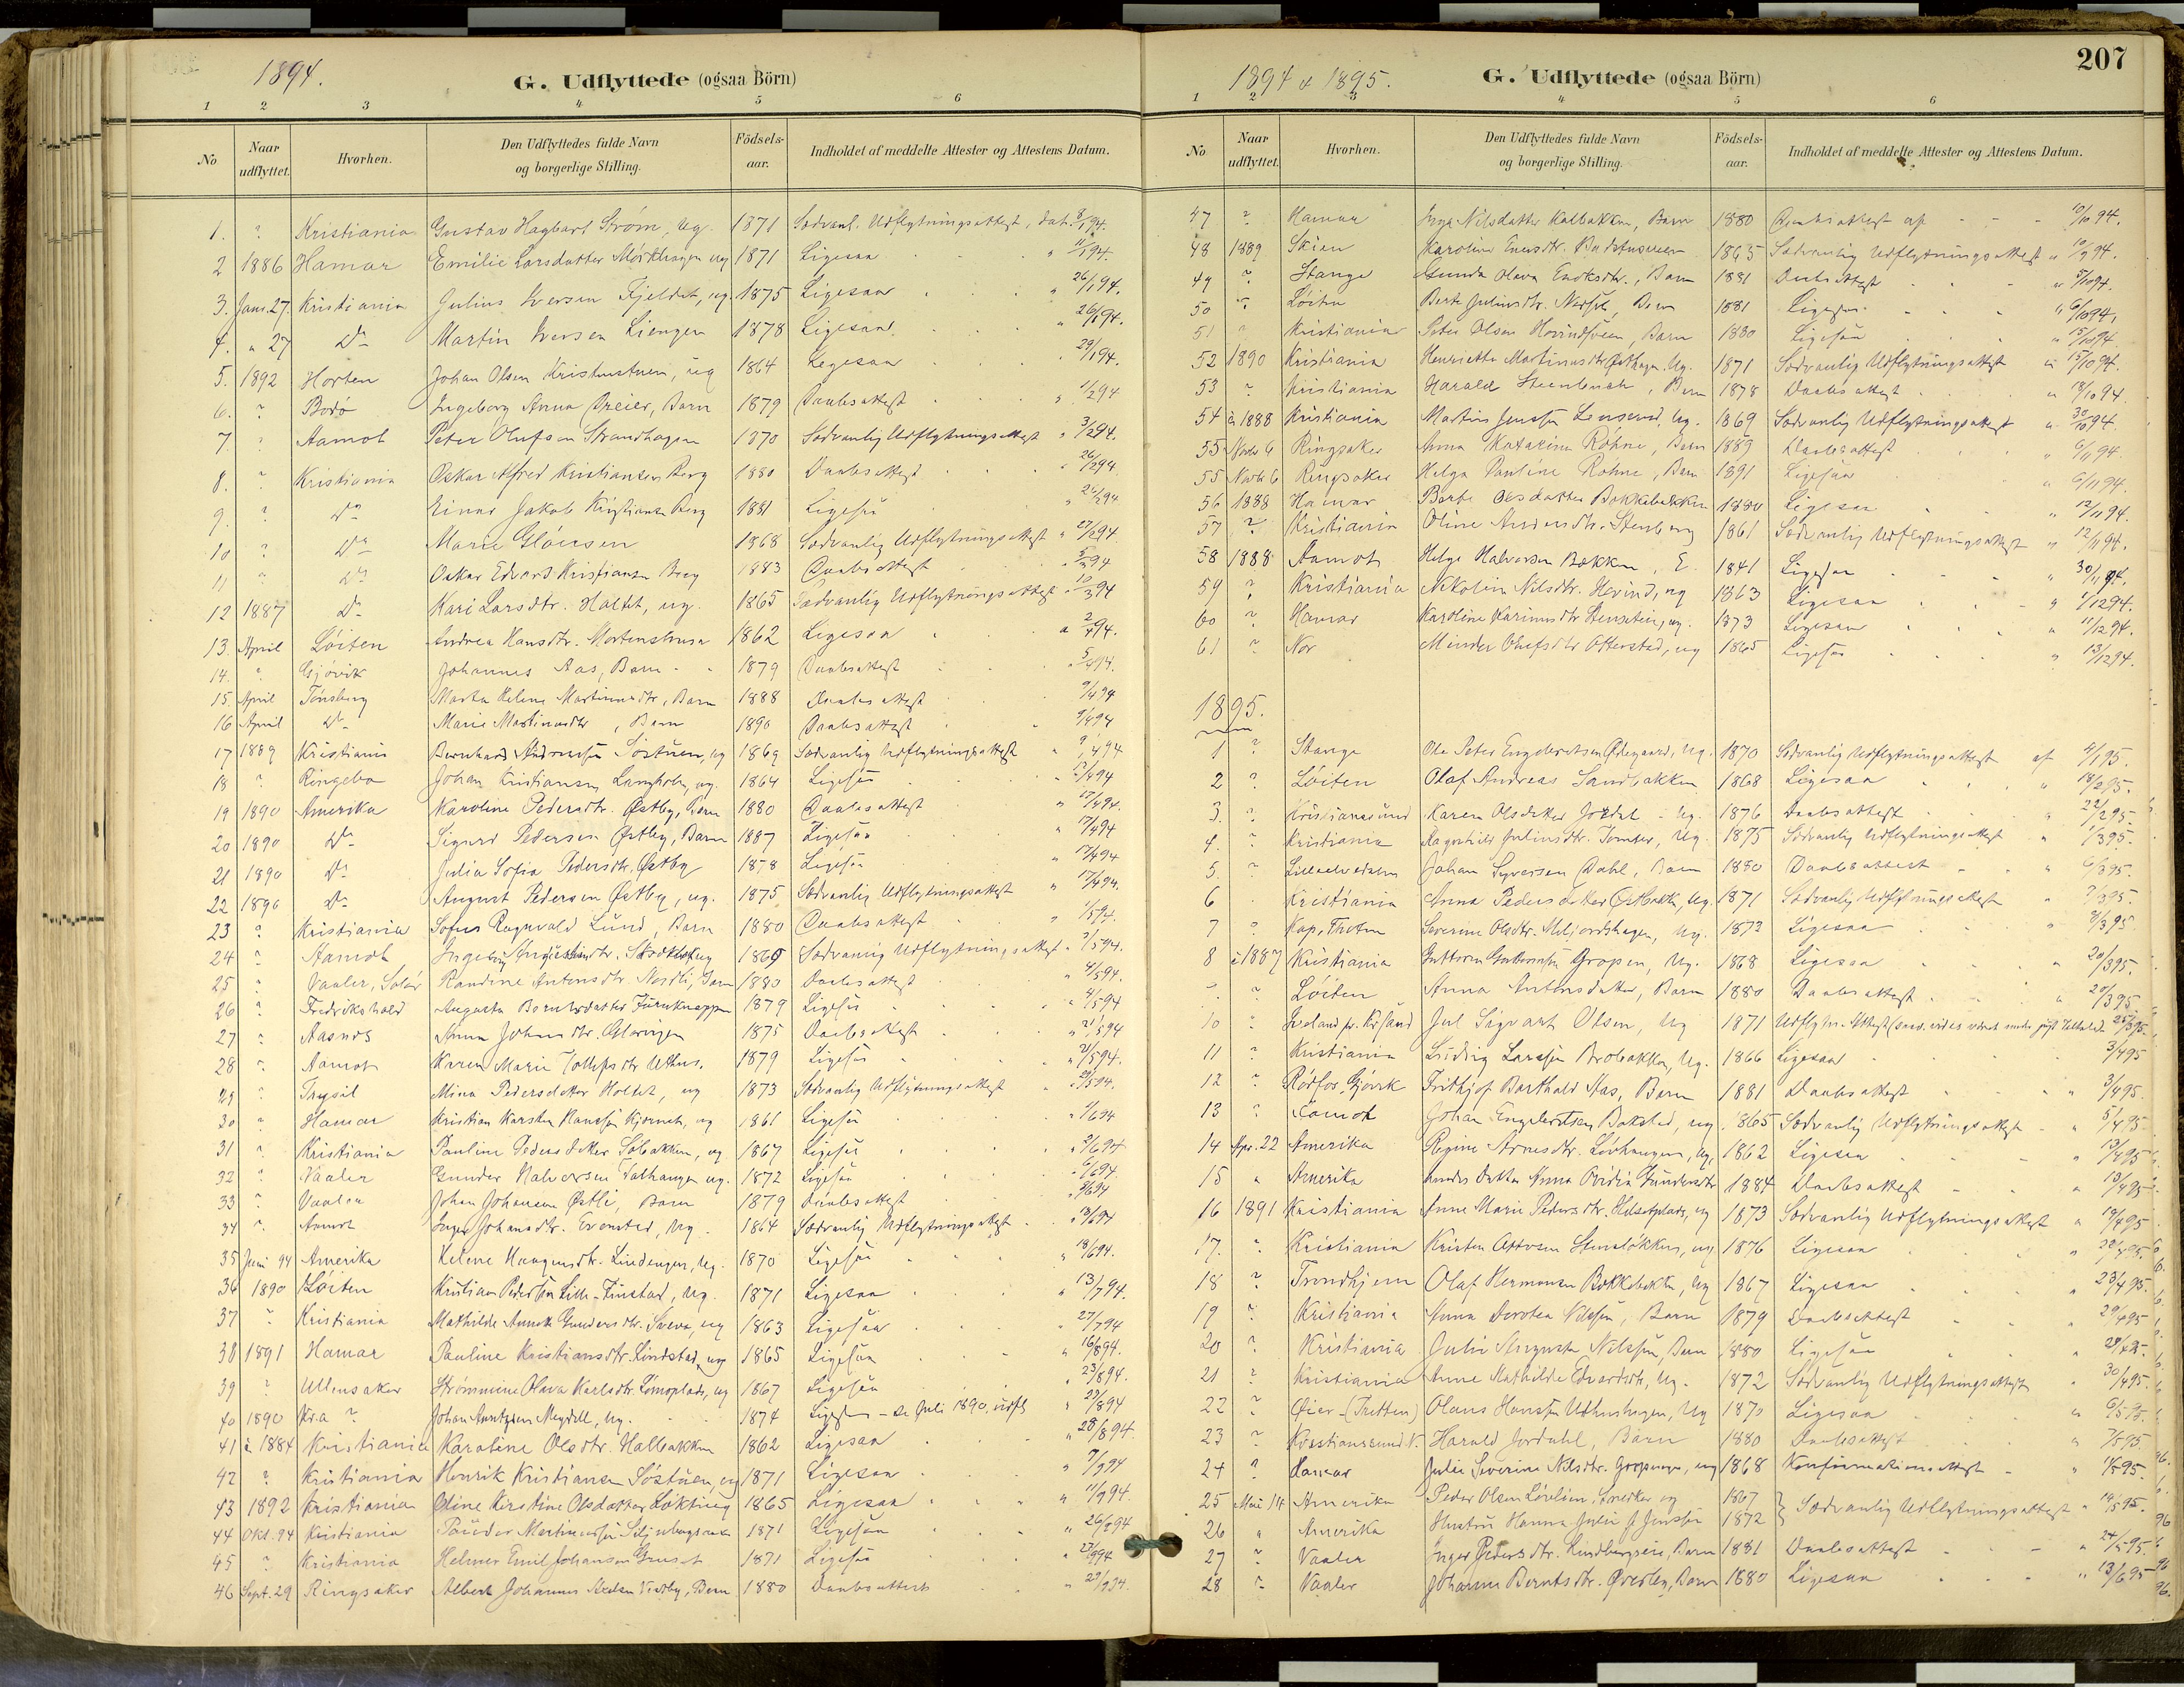 1894.
G. Udflyttede (ogsaa Börn)
1 2 3 4 5 6
No
Naar udflyttet.
Hvorhen.
Den Udflyttedes fulde Navn og borgerlige Stilling.
Födsels-aar.
Indholdet af meddelte Attester og Attestens Datum.
1. ? Kristiania Gustav Hagbart Strøm, ug. 1871 Sædvanl. Udflytningsattest, dat. 8/1 94.
2 1886 Hamar Emilie Larsdatter Mørkhagen ug 1871 Ligesaa " 11/1 94.
3. Janr. 27. Kristiania Julius Iversen Fjeldet, ug. 1875 Ligesaa " 26/1 94.
4. " 27 Do Martin Iversen Liengen 1878 Ligesaa " 26/1 94.
5. 1892 Horten Johan Olsen Kristenstuen, ug 1864 Ligesaa " 29/1 94.
6. ? Bodø Ingeborg Anna Dreier, Barn 1879 Daabsattest " 1/2 94
7. ? Aamot Peter Olufsen Strandhagen 1870 Sædvanlig Udflytningsattest " 3/2 94.
8. ? Kristiania Oskar Alfred Kristiansen Berg 1880 Daabsattest " 26/2 94
9. ? Do Einar Jakob Kristiansen Berg 1881 Ligesaa " 26/2 94
10 ? Do Marie Gløersen 1868 Sædvanlig Udflytningsattest " 27/2 94
11 " Do Oskar Edvard Kristiansen Berg 1883 Daabsattest " 5/3 94
12 1887 Do Kari Larsdtr. Haltet, ug. 1865 Sædvanlig Udflytningsattest " 10/3 94
13. April Löiten Andrea Hansdtr. Mortenstuen 1862 Ligesaa " 2/4 94.
14. " Gjövik Johannes Aas, Barn 1879 Daabsattest " 5/4 94.
15. April Tönsberg Marta Helene Martinusdtr, Barn 1888 Daabsattest 9/4 94
16 April Do Marie Martinusdtr, Barn 1890 Daabsattest " 9/4 94
17 1889 Kristiania Bernhard Andreassen Sörstuen, ug 1869 Sædvanlig Udflytningsattest " 9/4 94
18 ? Ringebo Johan Kristiansen ug. 1864 Ligesaa /4 94
19 1890 Amerika Karoline Pedersdtr. Østby, Barn 1880 Daabsattest " 17/4 94.
20 1890 Do Sigurd Pedersen Østby, Barn 1887 Ligesaa " 17/4 94
21 1890 Do Julia Sofia Pedersdtr. Østby 1878 Ligesaa " 17/4 94
22 1890 Do August Pedersen Østby, ug. 1875 Sædvanlig Udflytningsattest " 17/4 94.
23 ? Kristiania Sofus Ragnvald Lund, Barn 1880 Daabsattest " 1/5 94.
24 ? Aamot 1869 Sædvanlig Udflytningsattest " /5 94.
25 " Vaaler, Solör Randine Antonsdtr. Nordli, Barn 1880 Daabsattest " 4/5 94.
26 " Fredrikshald Augusta 1879 Ligesaa " 4/5 94
27 " Aasnes Anna Johansdtr. 1875 Daabsattest " 21/5 94
28 " Aamot Karen Marie Tollefsdtr. 1879 Ligesaa " 21/5 94.
29 ? Trysil Mina Pedersdatter Holtet, ug 1873 Sædvanlig Udflytningsattest " 29/5 94.
30 " Hamar Kristian Karsten Hanssen ug 1861 Ligesaa " 1/6 94
31 ? Kristiania Pauline Pedersdatter Söbakken, ug 1867 Ligesaa " 2/6 94
32 ? Vaaler Gunder Halvorsen ug. 1872 Ligesaa " 6/6 94
33 ? Vaaler Johan Johansen Østli, Barn 1879 Daabsattest " 9/6 94
34 ? Aamot Inger Johansdtr. Evenstad, ug. 1864 Sædvanlig Udflytningsattest " 13/6 94
35 Juni 94 Amerika Helene Haagensdtr. Lindengen, ug. 1870 Ligesaa " 18/6 94.
36 1890 Löiten Kristian Pedersen Lille-Finstad, ug. 1871 Ligesaa " 13/7 94.
37 ? Kristiania Mathilde Annette Gundersdtr. Sveen, ug 1863 Ligesaa " 27/7 94
38 1891 Hamar Pauline Kristiansdtr. Lindstad, ug 1865 Ligesaa " 16/8 94.
39 ? Ullensaker Olava Karlsdtr. ug 1867 Ligesaa " 23/8 94.
40 1890 Kr.a ? Johan ug. 1874 Ligesaa - se Juli 1890, indfl " 23/8 94
41 à 1884 Kristiania Karoline Olsdtr. Halbakken 1862 Ligesaa " 28/8 94.
42 ? Kristiania Henrik Kristiansen Söstuen, ug 1871 Ligesaa " 7/9 94
43 1892 Kristiania Oline Kirstine Olsdatter Løkting 1865 Ligesaa " 11/9 94.
44 Okt. 94 Kristiania Peder Martinussen 1871 Ligesaa " 26/9 94
45 ? Kristiania Helmer Emil Johansen Gruset 1871 Ligesaa " 27/9 94
46 Sept. 29 Ringsaker Albert Johannes Barn 1880 Daabsattest " 29/9 94.
1894 & 1895.
G. Udflyttede (ogsaa Börn)
207
1 2 3 4 5 6
No
Naar udflyttet.
Hvorhen.
Den Udflyttedes fulde Navn og borgerlige Stilling.
Födsels-aar.
Indholdet af meddelte Attester og Attestens Datum.
47 ? Hamar Inga Nilsdatter Kalbakken, Barn 1880 Daabsattest af 10/10 94.
48 1889 Skien Karoline Evensdtr. Badstueveen 1865 Sædvanlig Udflytningsattest " 10/9 94.
49 ? Stange Gunda Olava Eriksdtr., Barn 1881 Daabsattest " 5/10 94.
50 " Löiten Berte Juliusdtr. Barn 1881 Ligesaa " 6/10 94.
51 ? Kristiania Peter Olsen Barn 1880 Ligesaa " 15/10 94
52 1890 Kristiania Henriette Martinusdtr. ug. 1871 Sædvanlig Udflytningsattest " 15/10 94.
53 ? Kristiania Harald Steenbuch, Barn 1878 Daabsattest " 18/10 94
54 à 1888 Kristiania Martin Jenssen ug. 1869 Sædvanlig Udflytningsattest " 30/10 94.
55 Novbr 6 Ringsaker Anna Katarina Rohne, Barn 1889 Daabsattest " 6/11 94.
55 Novbr 6 Ringsaker Helga Pauline Rohne, Barn 1891 Ligesaa " 6/11 94.
56 1888 Hamar Berte Olsdatter Bakkebakken 1880 Ligesaa " 12/11 94.
57 ? Kristiania Oline Andersdtr. Stenberg 1861 Sædvanlig Udflytningsattest " 12/11 94.
58 1888 Aamot Helge Halvorsen Bakken, E. 1841 Ligesaa " 30/11 94.
59 ? Kristiania Nikoline Nilsdtr. Hovind, ug 1863 Ligesaa " 1/12 94.
60 ? Hamar Karoline Karinusdtr. Stensteie, ug. 1873 Ligesaa " 11/12 94.
61 ? Nor Minda Olufsdtr. Otterstad, ug 1865 Ligesaa " 13/12 94.
1895.
1 ? Stange Ole Peter Engebretsen Ødegaard, ug. 1870 Sædvanlig Udflytningsattest af 4/1 95.
2 ? Löiten Olaf Andreas Sandbakken 1868 Ligesaa " 18/2 95.
3. ? Kristiansund Karen Olsdatter Jordal - ug. 1876 Daabsattest " 22/2 95.
4. ? Kristiania Ragnhild Juliusdtr. Tomter, ug. 1875 Sædvanlig Udflytningsattest " 1/3 95.
5. ? Lilleelvedalen Johan Syversen Dahl, Barn 1880 Daabsattest " 6/3 95.
6 Kristiania Anna Pedersdatter Østbakk, ug. 1871 Sædvanlig Udflytningsattest " 7/3 95.
7 ? Kap, Thoten Severine Olsdtr. Miljordshagen, ug. 1873 Ligesaa " 8/3 95.
8 à 1887 Kristiania Guttorm Guttormsen Gropen, ug. 1868 Ligesaa " 20/3 95.
? Löiten Anna Antonsdatter, Barn 1880 Daabsattest " 20/3 95
10 ? Jul Sigvart Olsen, ug 1871 25/3 95.
11 ? Kristiania Ludvig Larssen Brobakken, ug. 1866 Ligesaa 3/4 95
12 ? Rödfos, Gjövik Fridtjof Barthold Aas, Barn 1881 Daabsattest " 3/4 95.
13 ? Aamot Johan Engebretsen Bakstad, ug. 1865 Sædvanlig Udflytningsattest " 5/4 95
14 Apr. 22 Amerika Regine Arnesdtr. Løvhaugen, ug. 1862 Ligesaa " 13/4 95
15 " Amerika hendes Datter Anna Gundersdtr 1884 Daabsattest " 13/4 95
16 1891 Kristiania Anne Marie Pedersdtr. Helsetplads, ug 1873 Sædvanlig Udflytningsattest " 19/4 95
17. ? Kristiania Kristen Ottosen Stensløkken, ug 1876 Ligesaa " 20/4 95.
18 ? Trondhjem Olaf Hermansen Bakkebakken, ug 1867 Ligesaa " 23/4 95.
19 ? Kristiania Anna Dorotea Nilssen, Barn 1879 Daabsattest " 29/4 95
20 ? Kristiania Julie Augusta Nilssen, Barn 1880 Ligesaa " 29/4 95.
21 ? Kristiania Anne Mathilde Edvardsdtr, ug. 1872 Sædvanlig Udflytningsattest " 30/4 95.
22 ? Øier - (Tretten) Olaus Hanssen Uthushagen, ug 1870 Ligesaa " 6/5 95.
23 ? Kristianssund N. Harald Jordahl, Barn 1880 Daabsattest " 7/5 95.
24 ? Hamar Julie Severine Nilsdtr. ug 1868 Konfirmationsattest " 1/5 95.
25 Mai 14 Amerika Peder Olsen Lövlien, Snedker og 1867 } Sædvanlig Udflytningsattest " 14/5 95.
26 " Amerika Hustru Hanna Julie f. Jenssen 1872
27 ? Vaaler Inger Pedersdtr. Barn 1881 Daabsattest " 24/5 95.
28 ? Vaaler Johanne Berntsdtr. Øvreby, Barn 1880 Ligesaa " 13/6 95